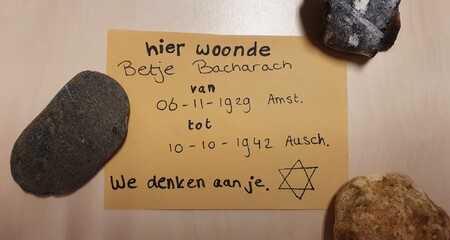 hier woonde
Betje Bacharach
van
06-11-1929 Amst.
tot
10-10-1942 Ausch.
We denken aan je.